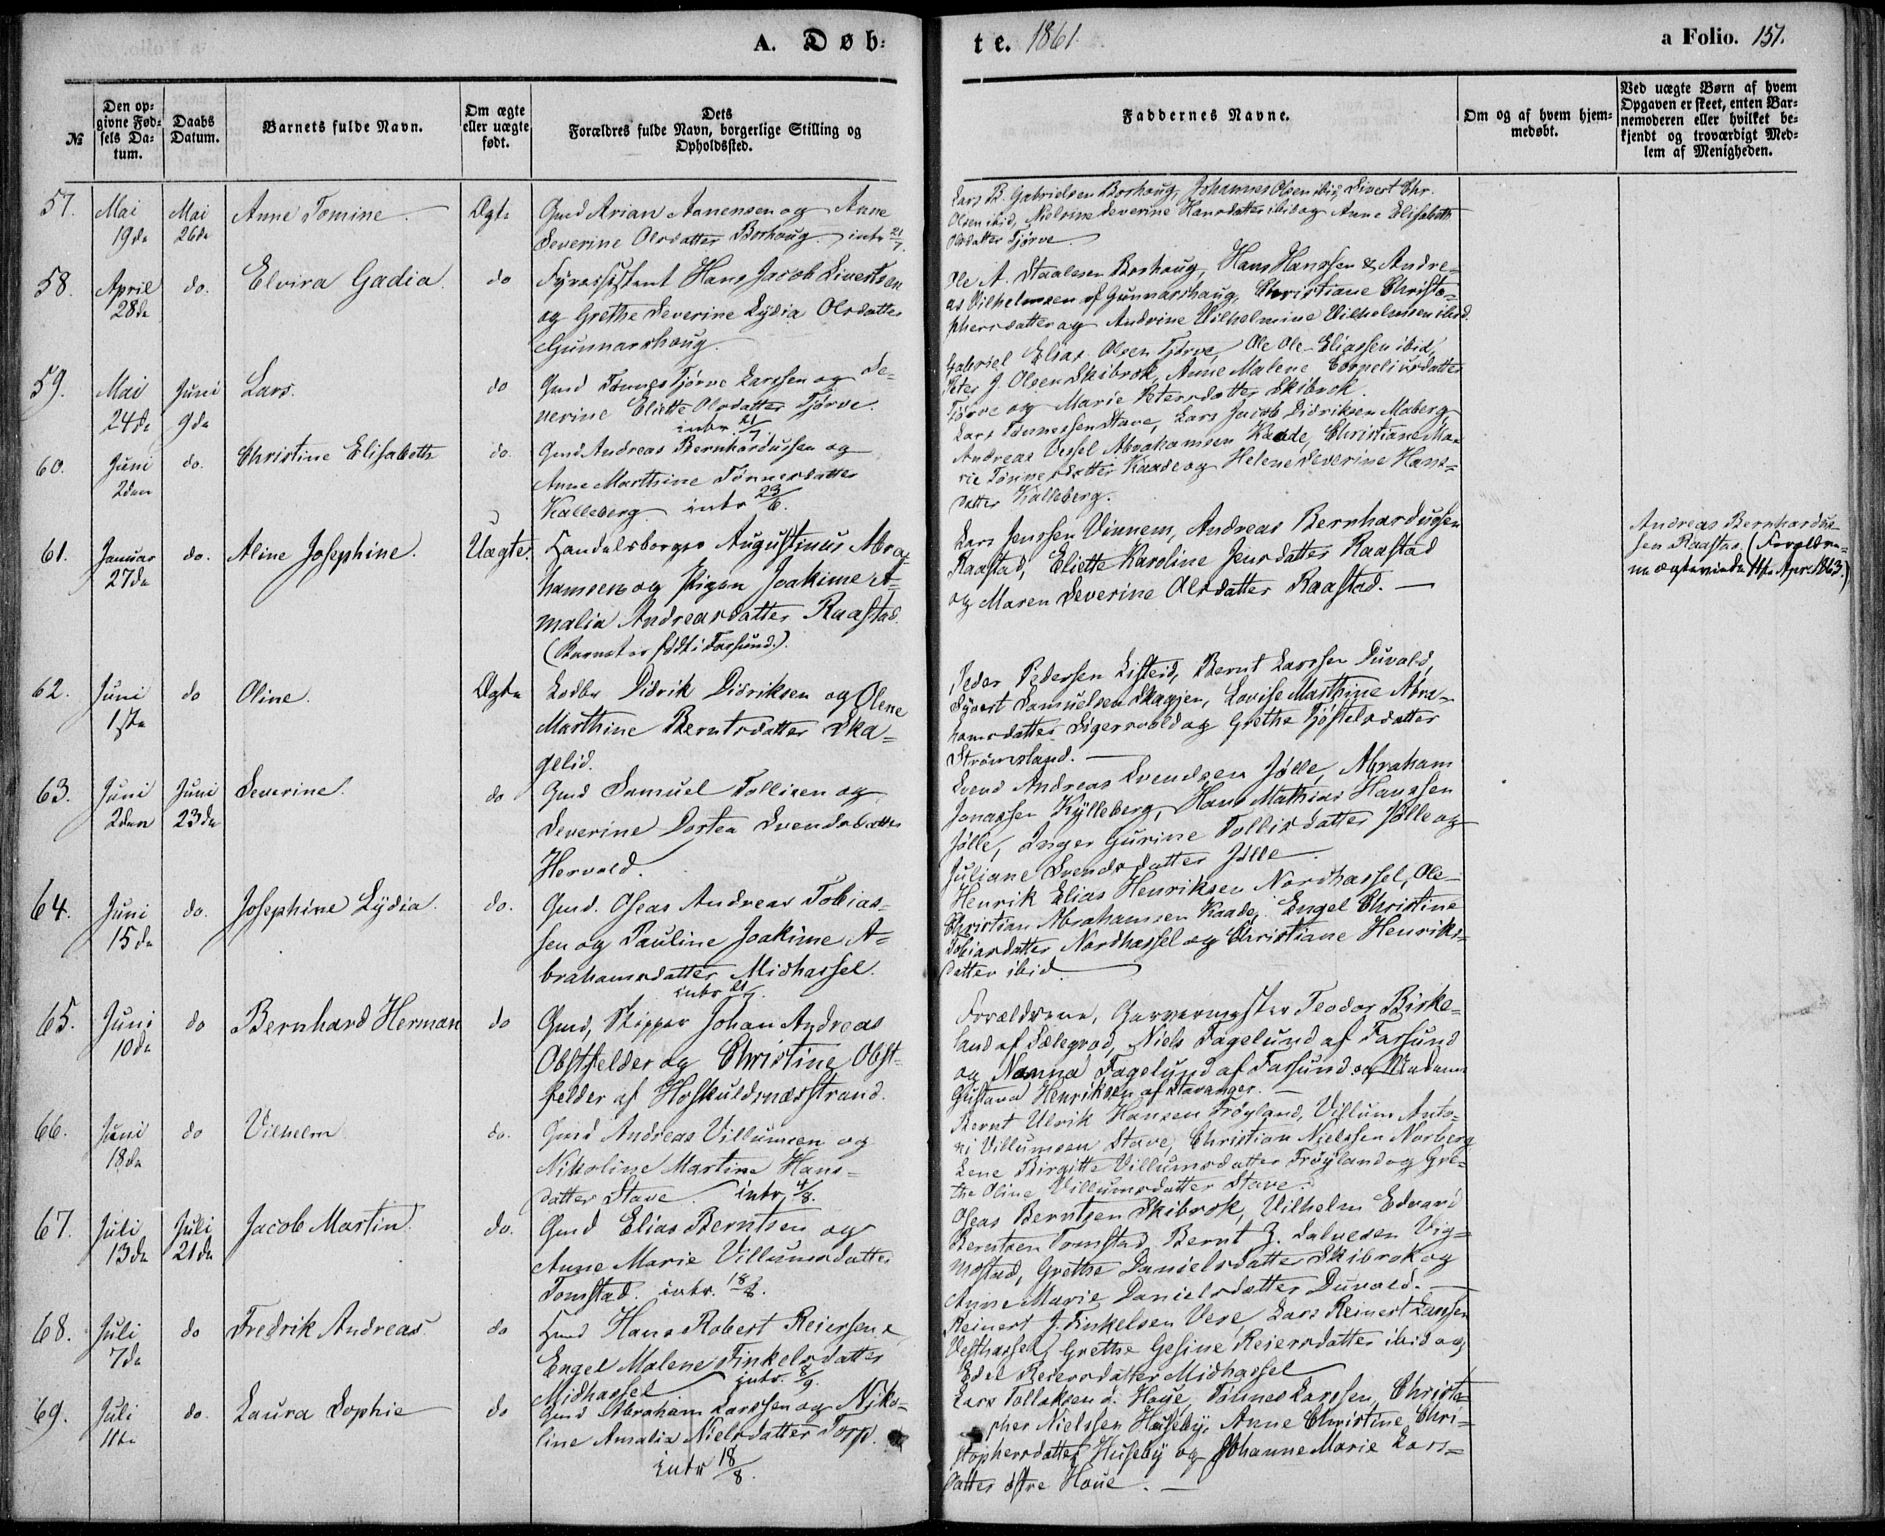 A. Døb-
te. 1861.
a Folio. 151.
№
Den op-
givne Fød-
sels Da-
tum.
Daabs
Datum.
Barnets fulde Navn.
Om ægte
eller uægte
født.
Dets
Forældres fulde Navn, borgerlige Stilling og
Opholdssted.
Faddernes Navne.
Om og af hvem hjem-
medøbt.
Ved uægte Børn af hvem
Opgaven er skeet, enten Bar-
nemoderen eller hvilket be-
kjendt og troværdigt Med-
lem af Menigheden.
57. Mai 19de Mai 26de Anne Tomine Ægte Gmd Arian Aanensen og Anne
Severine Olsdatter Borhaug. intr 21/7.
Lars B. Gabrielsen Borhaug, Johannes Olsen ibid, Sivert Chr.
Olsen ibid, Severine Hansdatter ibid og Anne Elisabeth
Olsdatter Tjørve.
58. April 28de do. Elvira Gadia. do Fyrassistent Hans Jacob Sivertsen
og Grethe Severine Lydia Olsdatter
Gunnarshaug.
Ole A. Staalesen Borhaug, Hans Hanssen & Andre-
as Vilhelmsen af Gunnarshaug, Christiane Christo-
phersdatter og Andrine Vilhelmine Vilhelmsen ibid.
59. Mai 24de Juni 9de Lars. do Gmd Tønnes Tjørve Larssen og Se-
verine Eliette Olsdatter Tjørve.
intr. 21/7.
Gabriel Elias Olsen Tjørve, Ole Ole Eliassen ibid,
Peter J. Olsen Skibrok, Anne Malene Corneliusdatter
Tjørve og Marie Petersdatter Skibrok.
60. Juni 2den do. Christine Elisabeth do. Gmd Andreas Bernhardusen og
Anne Marthine Tønnesdatter
Kalleberg intr 23/6.
Lars Tønnessen Stave, Lars Jacob Didriksen Maberg,
Andreas Abrahamsen Kaade, Christiane Ma-
rie Tønnesdatter Kaade og Helene Severine Hans-
datter Kalleberg.
61. Januar 27de do. Aline Josephine. Uægte. Handelsborger Augustinus Abra-
hamsen og Pigen Joakime A-
malia Andreasdatter Raastad.
(Barnet er født i Farsund.)
Lars Jenssen Vinnem, Andreas Bernhardusen
Raastad, Eliette Karoline Jensdatter Raastad
og Maren Severine Olsdatter Raastad.
Andreas Bernhardus-
sen Raastad. (Forældre-
ne ægteviede Apr. 1863.)
62. Juni 1ste do Oline. Ægte Didrik Didriksen og Olene
Marthine Berntsdatter Ska-
gelid.
Peder Pedersen Listeid, Bernt Larssen Duvold,
Syvert Samuelsen Skagjen, Lovise Marthine Abra-
hamsdatter Sigersvold og Grethe Tjøstelsdatter
Strømsland.
63. Juni 2den Juni 23de Severine. do Gmd Samuel Tollisen og
Severine Dortea Svendsdatter
Hervold.
Svend Andreas Svendsen Jølle, Abraham
Jonassen Kylleberg, Hans Mathias Hanssen
Jølle, Inger Gurine Tollisdatter Jølle og
Juliane Svendsdatter Jølle.
64. Juni 15de do. Josephine Lydia. do. Gmd. Oseas Andreas Tobias-
sen og Pauline Joakime A-
brahamsdatter Midhassel.
intr 21/7.
Henrik Elias Henriksen Nordhassel, Ole
Christian Abrahamsen Kaade, Engel Christine
Tobiasdatter Nordhassel og Christiane Henriks-
datter ibid.
65. Juni 10de do Bernhard Herman do Gmd, Skipper Johan Andreas
Obstfelder og Christine Obst-
felder af Høskuldsnæsstrand.
Forældrene, Garvermester Teodor Birke-
land af Sælegrod, Niels Fagelund af Farsund
og Nanna Fagelund af Farsund og Madam
Gustava Henriksen af Stavanger.
66. Juni 18de do Vilhelm do. Gmd Andreas Villumsen og
Nikoline Martine Hans-
datter Stave. intr. 4/8.
Bernt Ulrik Hansen Frøyland, Villum Anto-
ni Villumsen Stave, Christian Nielssen Norberg
Lene Birgitte Villumsdatter Frøyland og Gre-
the Oline Villumsdatter Stave.
67. Juli 13de Juli 21de Jacob Martin. do. Gmd Elias Berntsen og
Anne Marie Villumsdatter
Tomstad. intr. 18/8.
Oseas Berntsen Skibrok, Vilhelm Edvard
Berntsen Tomstad, Bernt J. Salvesen Vig-
mostad, Grethe Danielsdatter Skibrok og
Anne Marie Danielsdatter Duvold.
68. Juli 7de do Fredrik Andreas do Hmd Hans Robert Reiersen &
Engel Malene Finkelsdatter
Midhassel intr. 8/9.
Reinert J. Finkelsen Vere, Lars Reinert Larssen
Vesthassel, Grethe Gesine Reiersdatter ibid og
Edel Reiersdatter Midhassel
69. Juli 11te do. Laura Sophie do Gmd Abraham Larssen og Niko-
line Amalia Nielsdatter Torp.
intr 18/8.
Lars Tollaksen ø. Haye, Tønnes Larssen, Christo-
pher Nielssen Huseby, Anne Christine Chri-
stophersdatter Huseby og Johanne Marie Lars-
datter østre Haue.